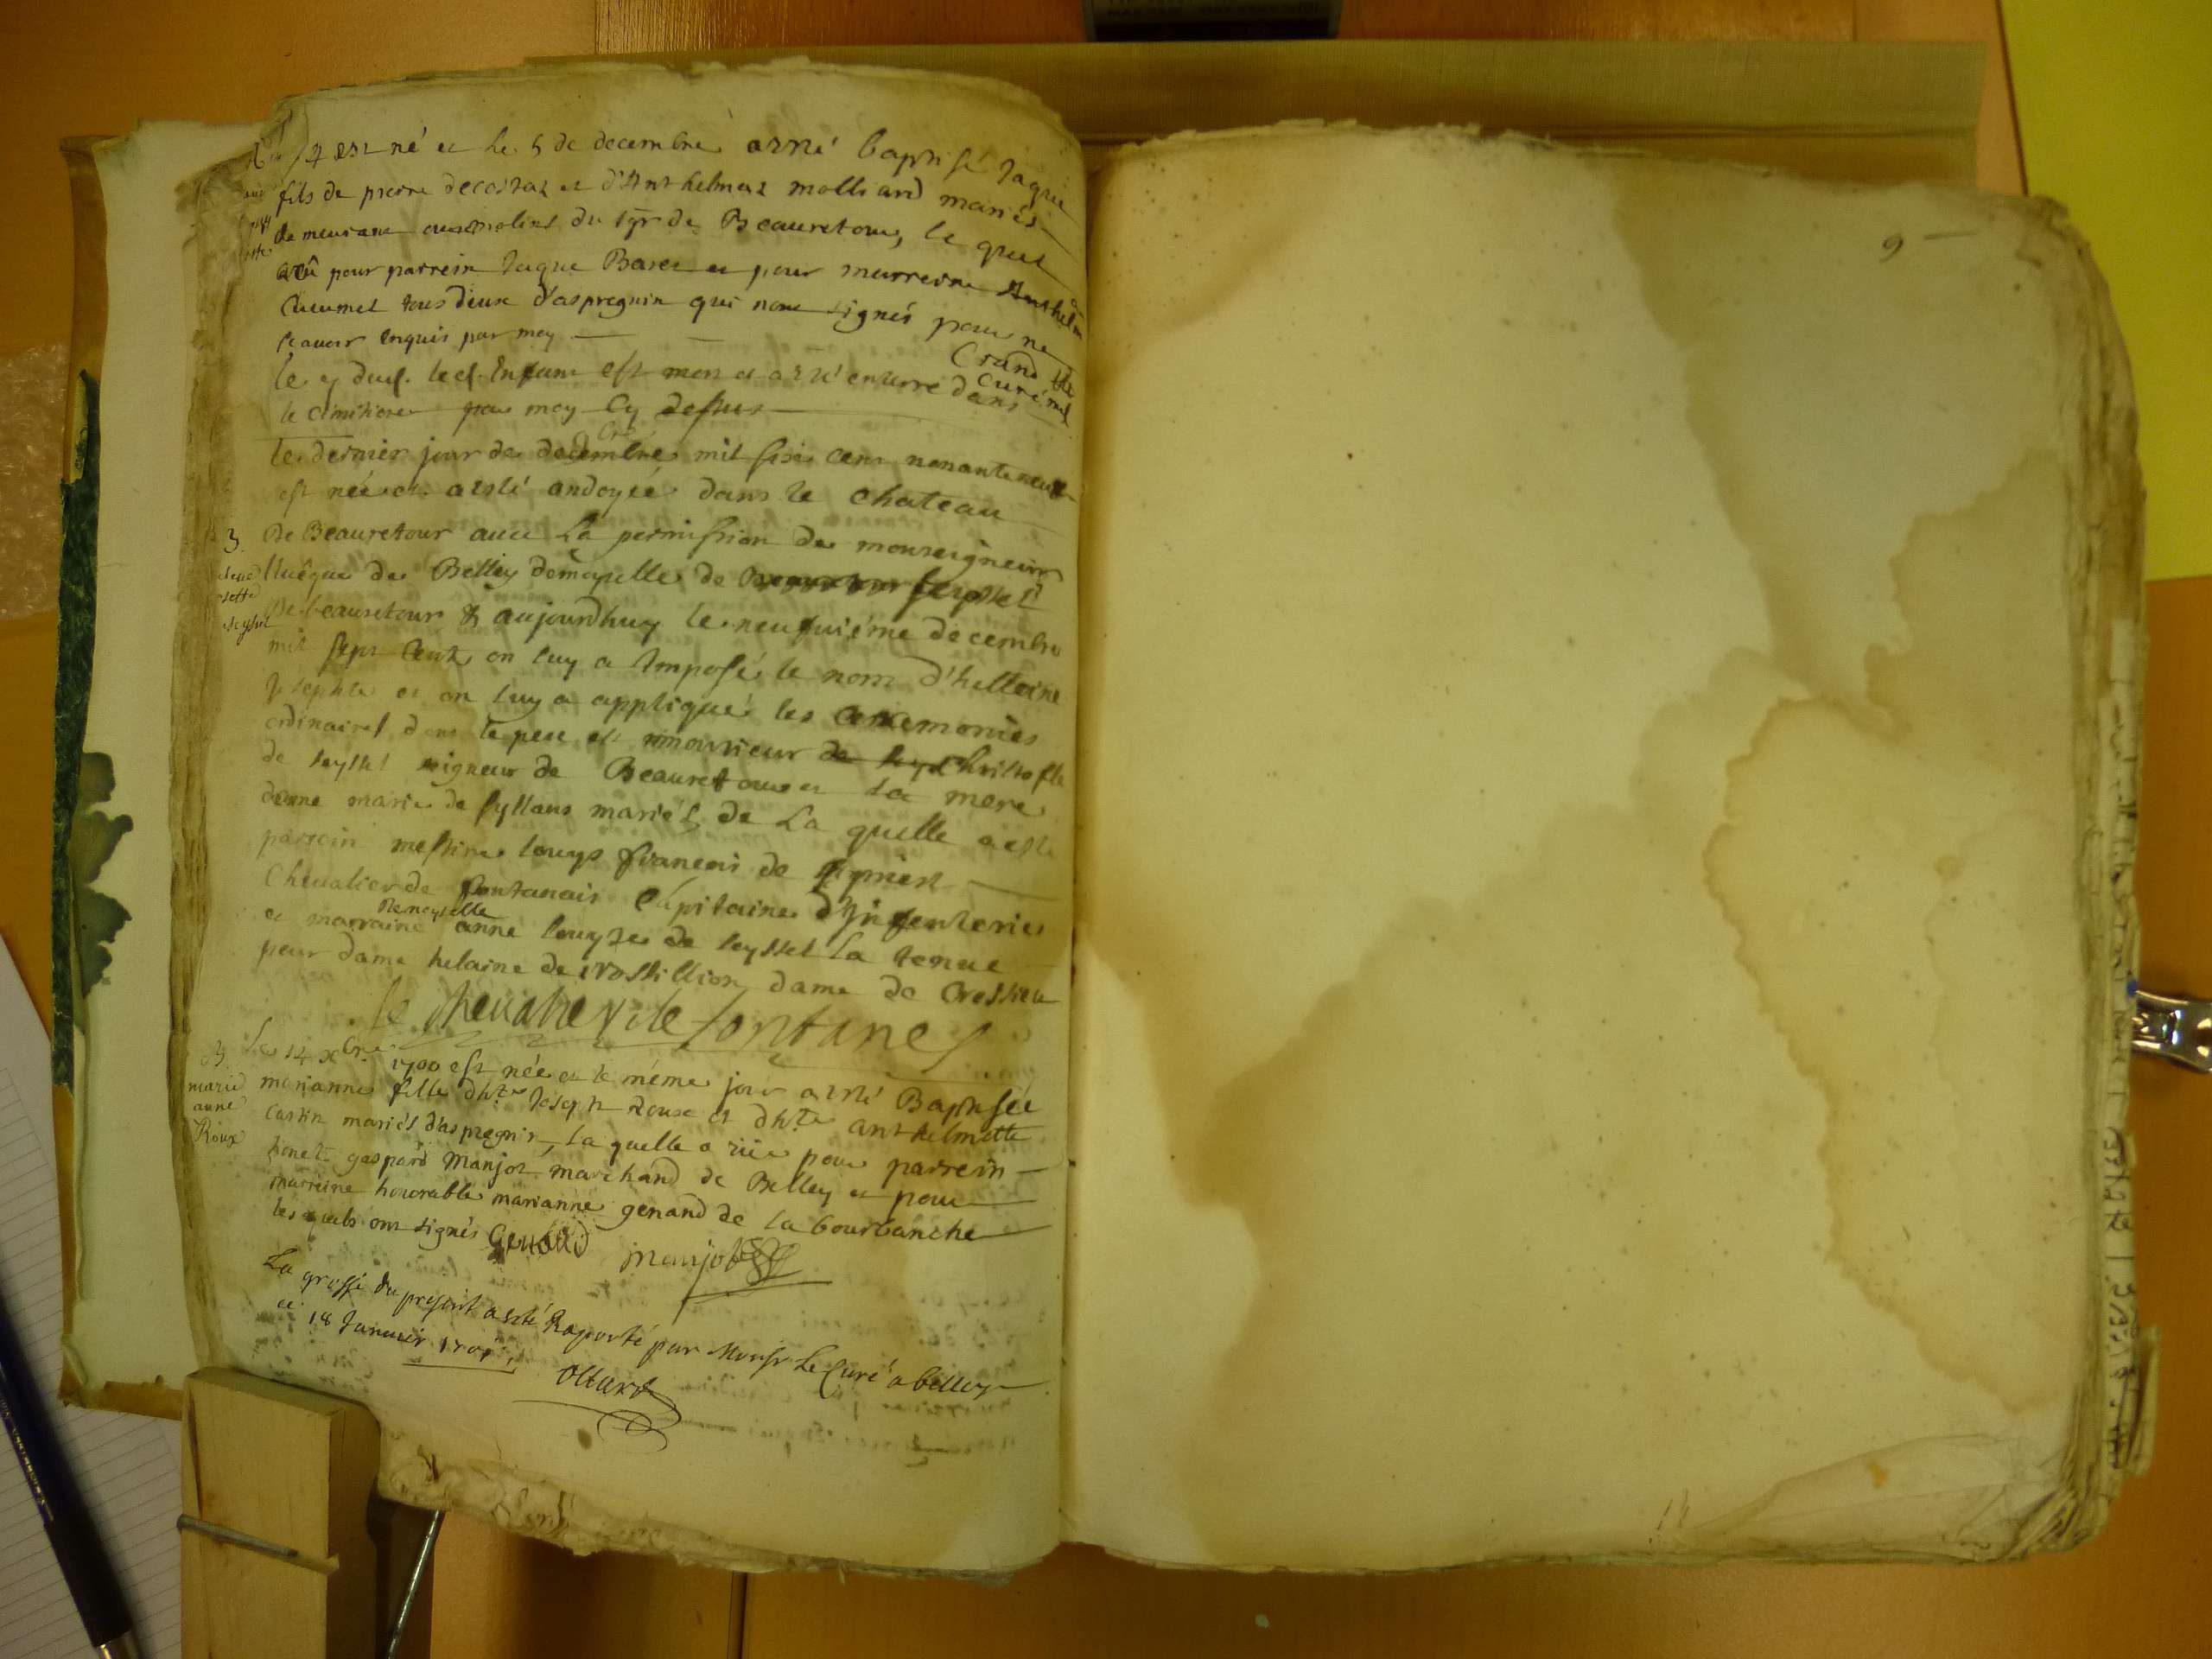 4 est né et le 5 de decembre a esté baptisé Jaque
fils de pierre decostaz et d'Anthelmaz molliard mariés
demeurant aux molins du sgr de Beauretour, le quel
a eû pour parrein Jaque et pour marreine Anthelm
tous deux d'aspregnin qui nont signés pour ne
scavoir enquis par moy
Crand
curé
le 7 dud. led. Enfant est mort et a esté enterré dans
le cimitiere par moy Cy dessus
Le dernier jour de decembre mil six cens nonante neuf
est née et a esté andoyée dans le chateau
De Beauretour avec La permission de monseigneur
lluêque de Belley demoyselle de seyssel
De beauretour & aujourdhuy le neufuiéme decembre
mil sept cent on luy a Imposé le nom d'helleine
Josephte et on luy a appliqué les ceremonies
ordinaires dont le pere est monsieur de seys Christofle
de seyssel seigneur de Beauretour et la mere
dame marie de syllans mariés, de La quelle a esté
parrein messire louys francois de
Chevalier de fontanais Capitaine d'Infenterie
et marraine demoyselle anne louyse de seyssel la tenue
pour dame helaine de dame de Cressieu
le chevalier de fontanes
B
marie
anne
Roux
Le 14 xbre 1700 est née et le méme jour a esté Baptisée
marianne fille dhte Joseph Roux et dhte anthelmette
mariés d'aspregnin, la quelle a eüe pour parrein
honet gaspard Manjot marchand de Belley et pour
marreine honorable marianne genand de la bourbanche
les quels ont signés Genand manjot
La grosse du present a esté Raporté par Monsr Le Curé a belley
ce 18 Janvier 1701,
9